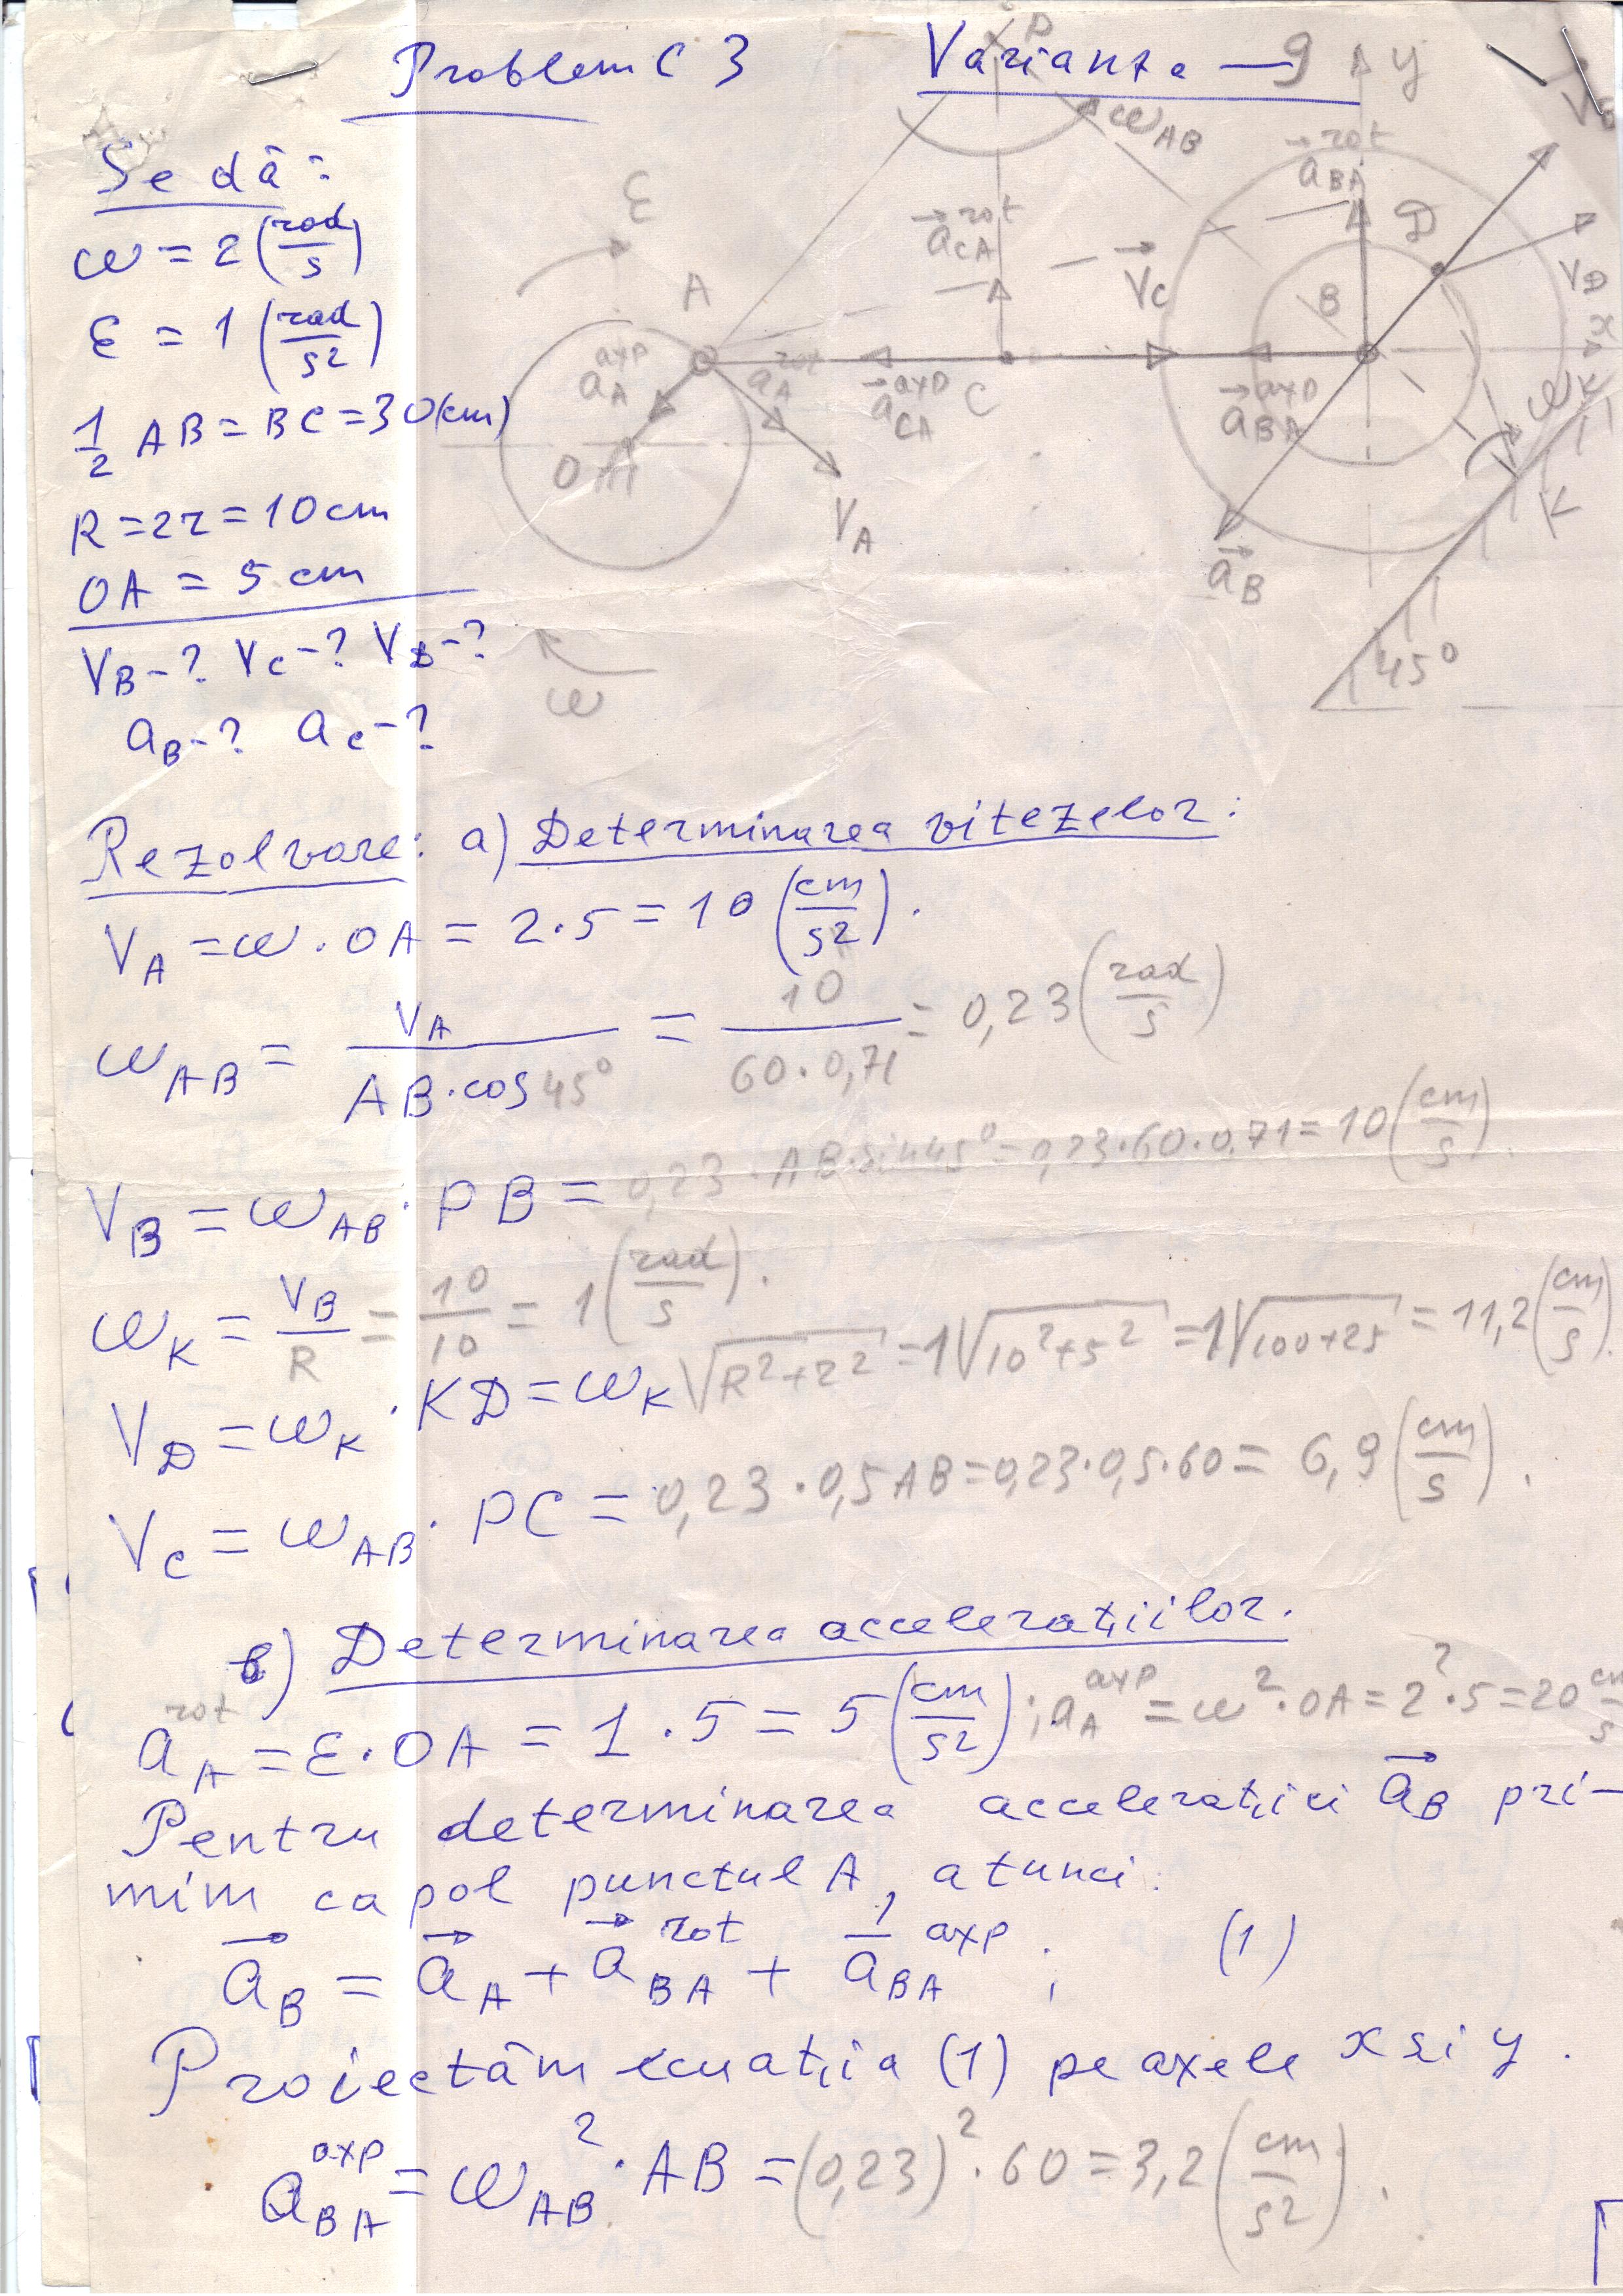 Problem C 3 Varianta — 9
Se dă:
ω = 2 (rad/s)
ε = 1 (rad/s²)
1/2 AB = BC = 30(cm)
R = 2r = 10 cm
OA = 5 cm
V_B - ? V_C - ? V_D - ?
a_B - ? a_C - ?
P
ω_AB
y
V_B
ε
A
a_CA^rot
V_C
a_BA^rot
D
V_D
B
x
a_A^axp
a_A^rot
a_CA^axp
C
a_BA^axp
ω_K
O
V_A
a_B
K
45°
ω
Rezolvare: a) Determinarea vitezelor:
V_A = ω · OA = 2·5 = 10 (cm/s²).
ω_AB = V_A / (AB·cos 45°) = 10 / (60·0,71) = 0,23 (rad/s)
V_B = ω_AB · PB = 0,23 · AB·sin45° = 0,23·60·0,71 = 10 (cm/s).
ω_K = V_B/R = 10/10 = 1 (rad/s).
V_D = ω_K · KD = ω_K √(R²+r²) = 1√(10²+5²) = 1√(100+25) = 11,2 (cm/s).
V_C = ω_AB · PC = 0,23·0,5AB = 0,23·0,5·60 = 6,9 (cm/s).
в) Determinarea accelerațiilor.
a_A^rot = ε·OA = 1·5 = 5 (cm/s²); a_A^axp = ω²·OA = 2²·5 = 20 cm/s
Pentru determinarea accelerației a_B pri-
mim ca pol punctul A, atunci:
a_B = a_A + a_BA^rot + a_BA^axp ; (1)
Proiectăm ecuația (1) pe axele x și y.
a_BA^axp = ω_AB² · AB = (0,23)²·60 = 3,2 (cm/s²).